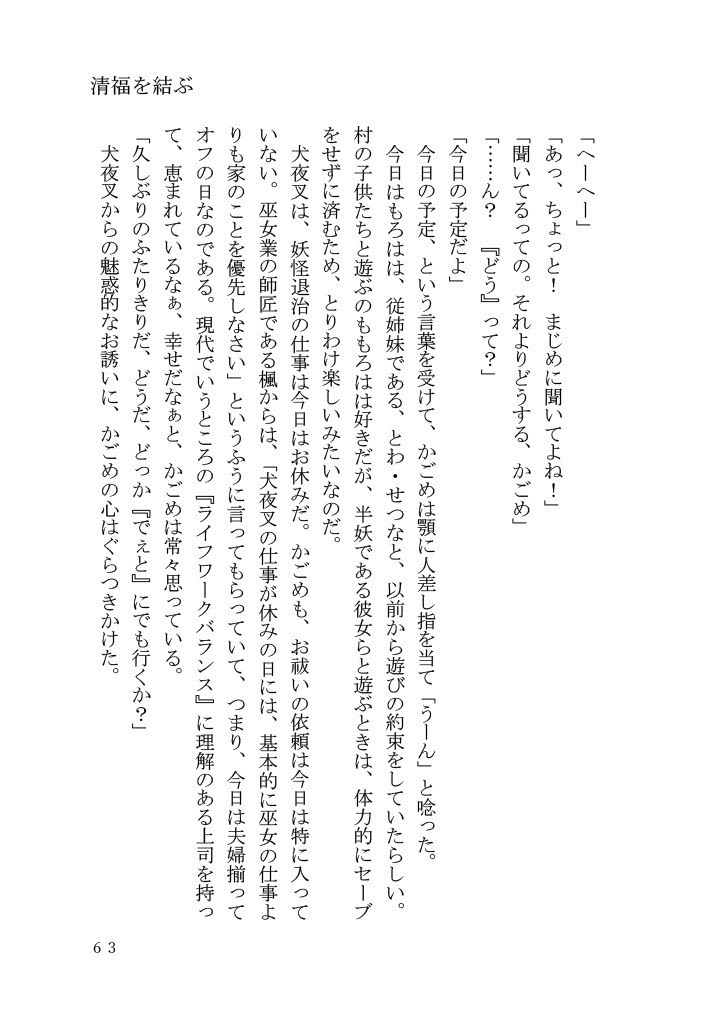 清福を結ぶ
「へーへー」
「あっ、ちょっと！　まじめに聞いてよね！」
「聞いてるっての。それよりどうする、かごめ」
「……ん？　『どう』って？」
「今日の予定だよ」
　今日の予定、という言葉を受けて、かごめは顎に人差し指を当て「うーん」と唸った。
　今日はもろはは、従姉妹である、とわ・せつなと、以前から遊びの約束をしていたらしい。
村の子供たちと遊ぶのももろはは好きだが、半妖である彼女らと遊ぶときは、体力的にセーブ
をせずに済むため、とりわけ楽しいみたいなのだ。
　犬夜叉は、妖怪退治の仕事は今日はお休みだ。かごめも、お祓いの依頼は今日は特に入って
いない。巫女業の師匠である楓からは、「犬夜叉の仕事が休みの日には、基本的に巫女の仕事よ
りも家のことを優先しなさい」というふうに言ってもらっていて、つまり、今日は夫婦揃って
オフの日なのである。現代でいうところの『ライフワークバランス』に理解のある上司を持っ
て、恵まれているなぁ、幸せだなぁと、かごめは常々思っている。
「久しぶりのふたりきりだ、どうだ、どっか『でぇと』にでも行くか？」
　犬夜叉からの魅惑的なお誘いに、かごめの心はぐらつきかけた。
63